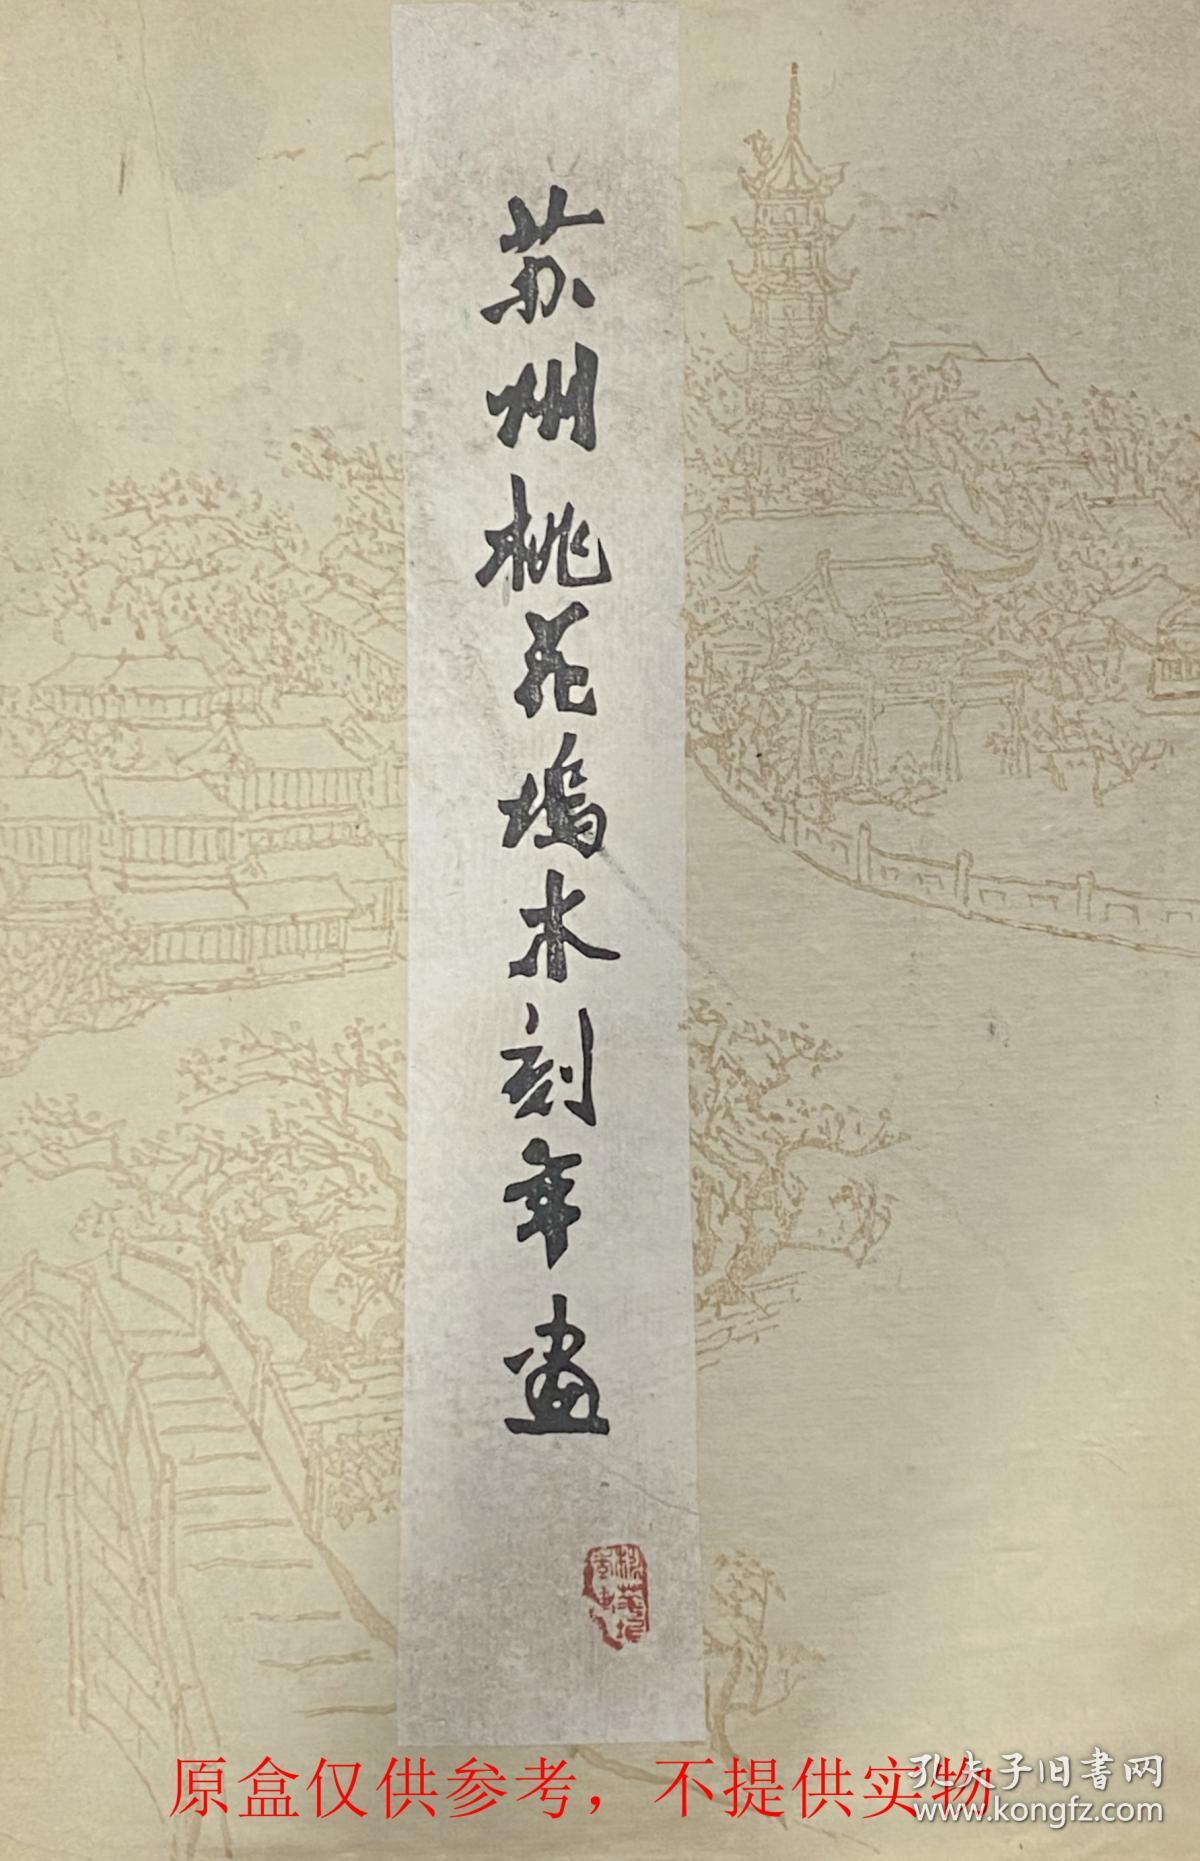 苏州桃花坞木刻年画
桃花坞
原盒仅供参考，不提供实物
孔夫子旧书网
www.kongfz.com